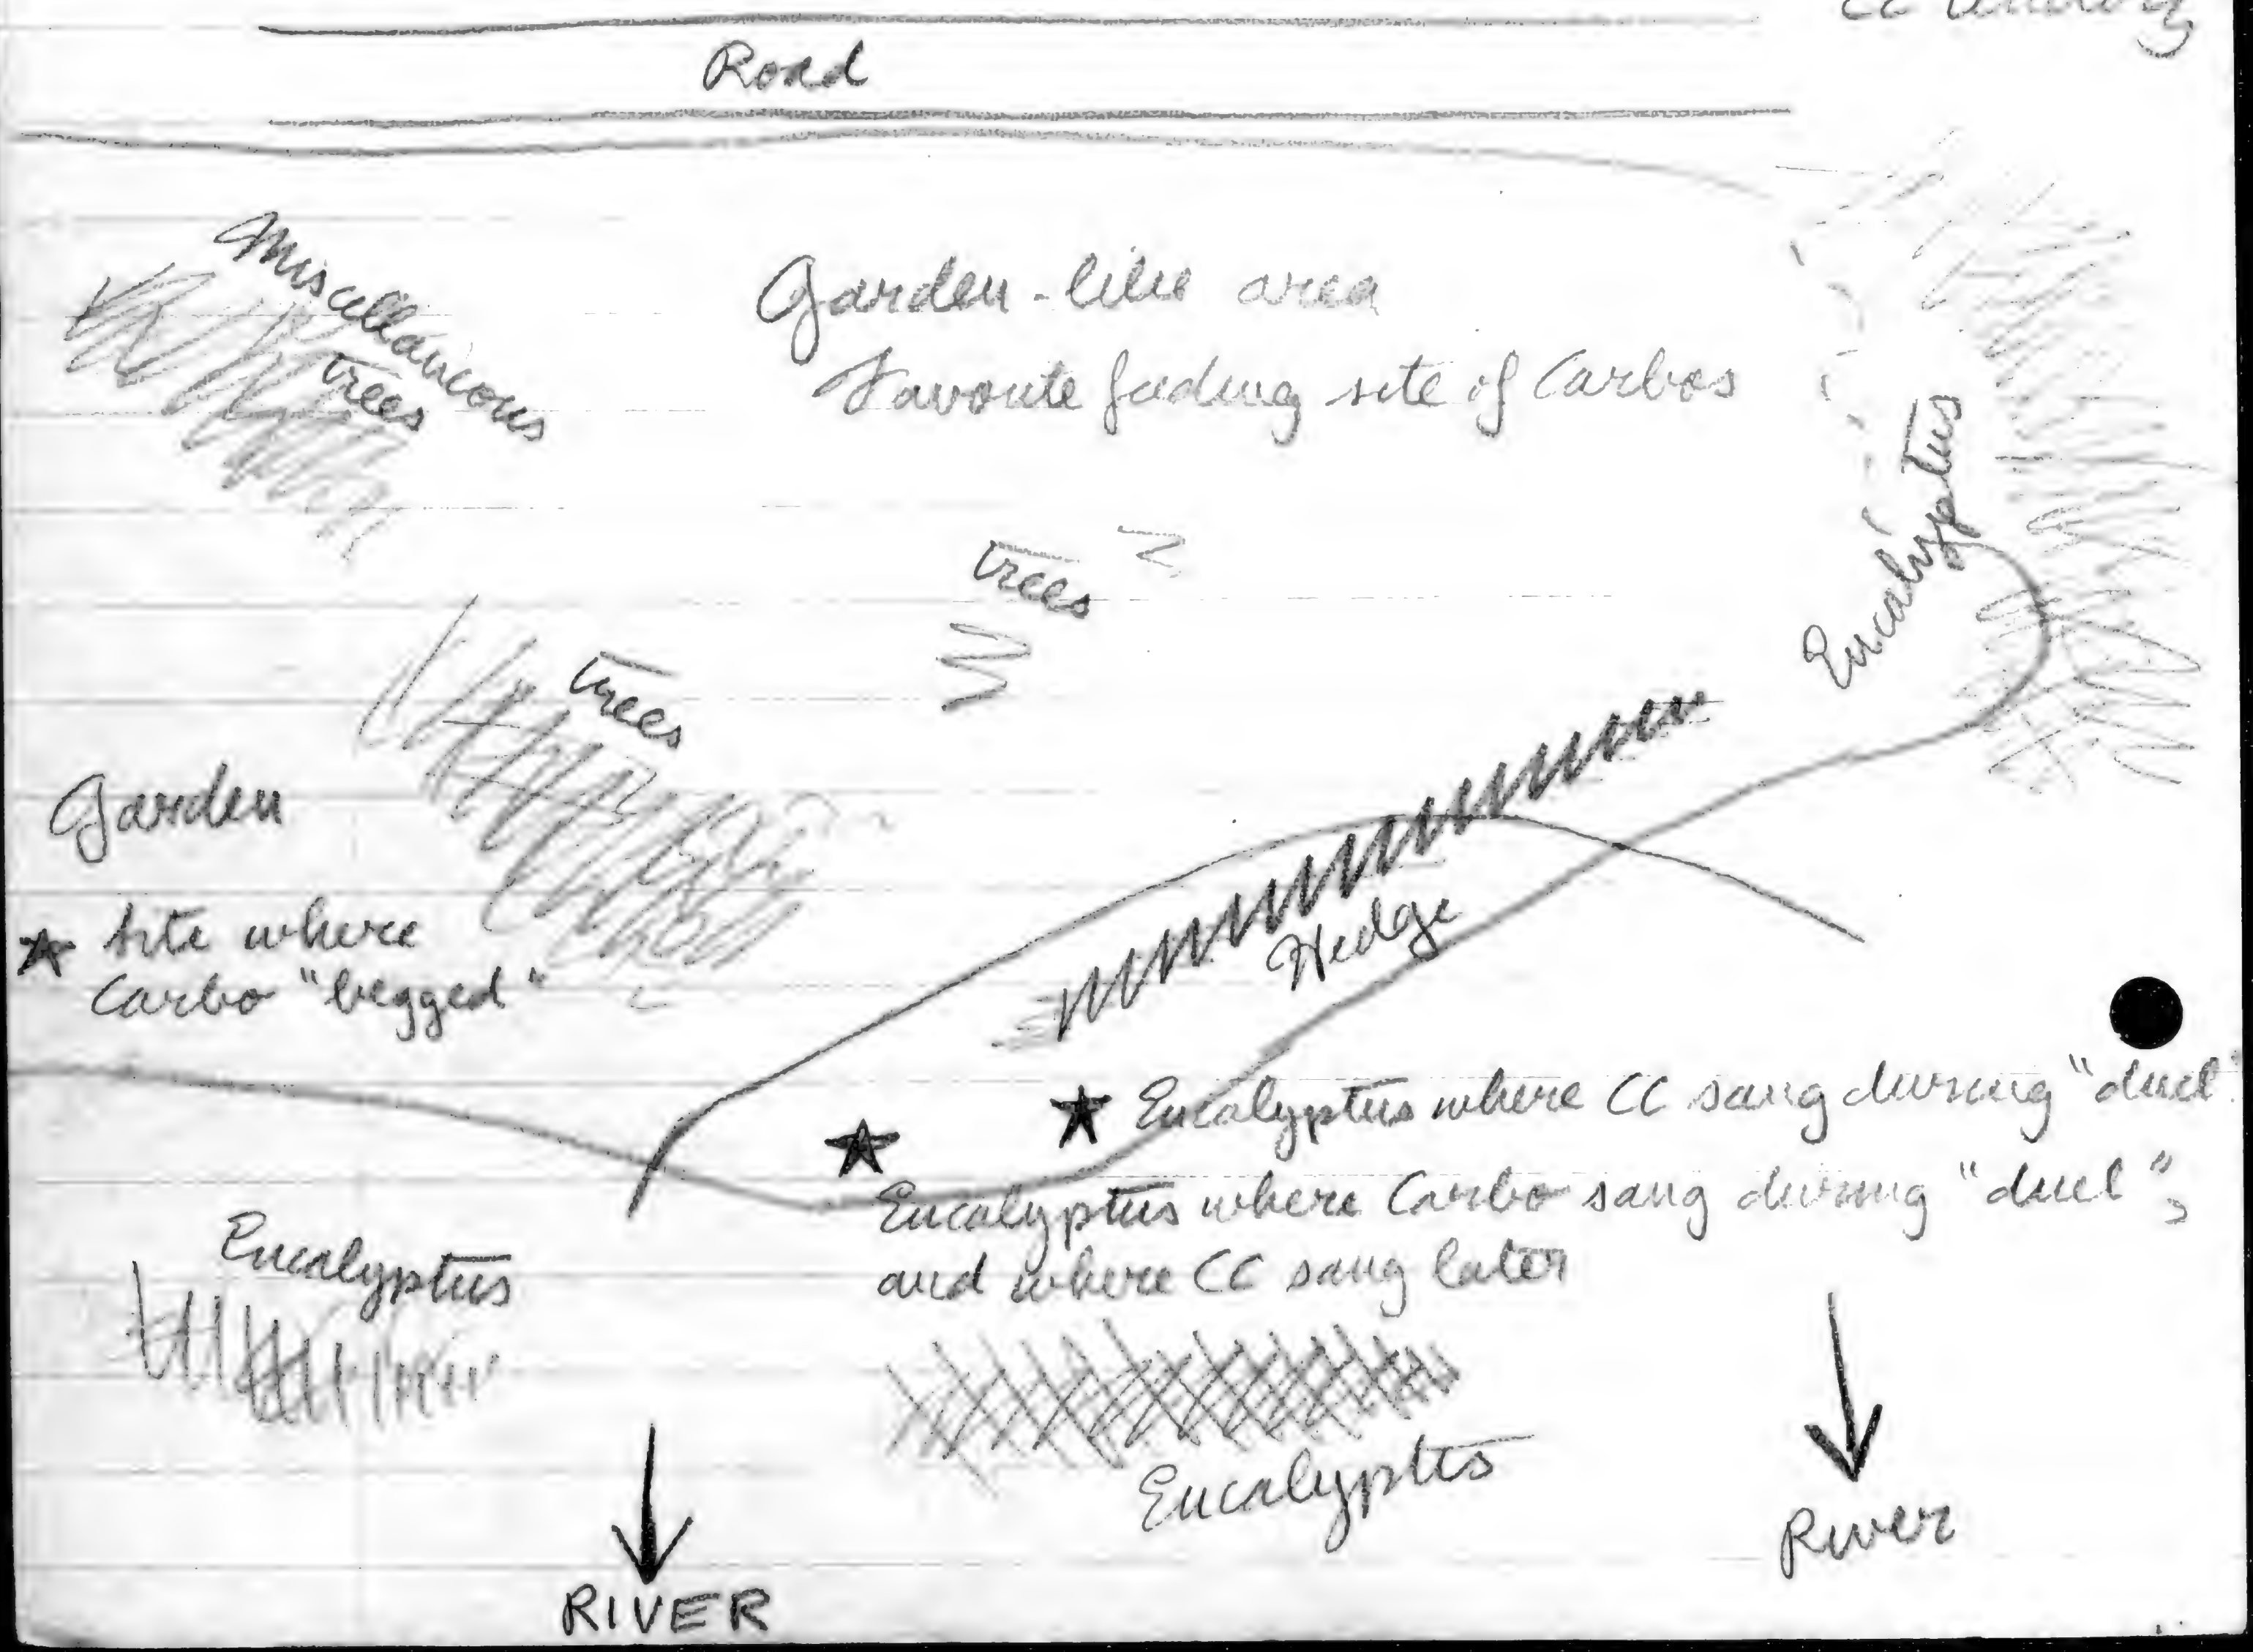 CC
Road
Miscellaneous
trees
Garden-like area
Favorite feeding site of Carbos
Eucalyptus
trees
trees
Garden
Hedge
Site where
Carbo "begged"
Eucalyptus where CC sang during "duel"
Eucalyptus where Carbo sang during "duel",
and where CC sang later
Eucalyptus
Eucalyptus
River
RIVER